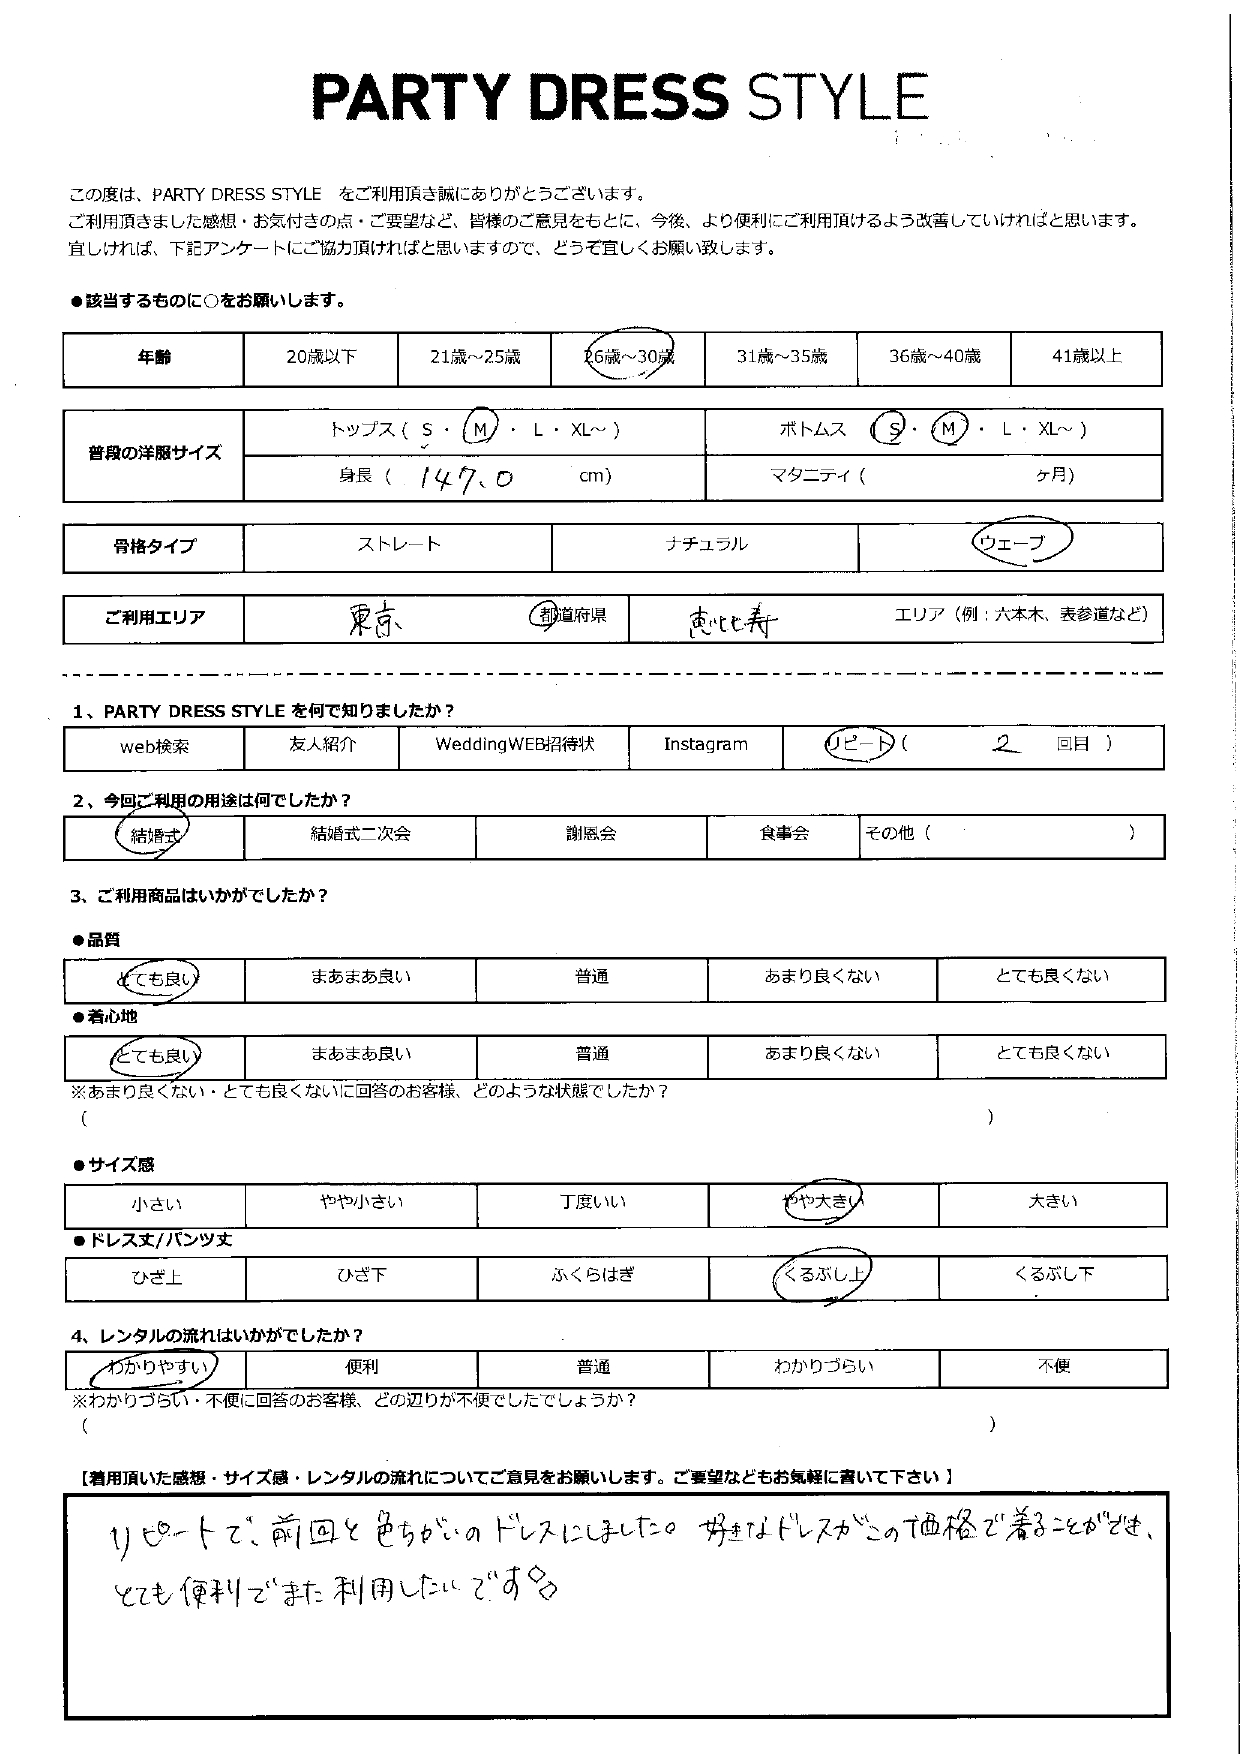 PARTY DRESS STYLE
この度は、PARTY DRESS STYLE をご利用頂き誠にありがとうございます。
ご利用頂きました感想・お気付きの点・ご要望など、皆様のご意見をもとに、今後、より便利にご利用頂けるよう改善していければと思います。
宜しければ、下記アンケートにご協力頂ければと思いますので、どうぞ宜しくお願い致します。
●該当するものに○をお願いします。
年齢 20歳以下 21歳～25歳 26歳～30歳 31歳～35歳 36歳～40歳 41歳以上
普段の洋服サイズ トップス ( S ・ M ・ L ・ XL～ ) ボトムス ( S ・ M ・ L ・ XL～ )
身長 ( 147.0 cm) マタニティ ( ヶ月)
骨格タイプ ストレート ナチュラル ウェーブ
ご利用エリア 東京 都道府県 恵比寿 エリア（例：六本木、表参道など）
1、PARTY DRESS STYLE を何で知りましたか？
web検索 友人紹介 WeddingWEB招待状 Instagram リピート ( 2 回目 )
2、今回ご利用の用途は何でしたか？
結婚式 結婚式二次会 謝恩会 食事会 その他 ( )
3、ご利用商品はいかがでしたか？
●品質
とても良い まあまあ良い 普通 あまり良くない とても良くない
●着心地
とても良い まあまあ良い 普通 あまり良くない とても良くない
※あまり良くない・とても良くないに回答のお客様、どのような状態でしたか？
( )
●サイズ感
小さい やや小さい 丁度いい やや大きい 大きい
●ドレス丈/パンツ丈
ひざ上 ひざ下 ふくらはぎ くるぶし上 くるぶし下
4、レンタルの流れはいかがでしたか？
わかりやすい 便利 普通 わかりづらい 不便
※わかりづらい・不便に回答のお客様、どの辺りが不便でしたでしょうか？
( )
【着用頂いた感想・サイズ感・レンタルの流れについてご意見をお願いします。ご要望などもお気軽に書いて下さい】
リピートで、前回と色ちがいのドレスにしました。好きなドレスがこの価格で着ることができ、
とても便利でまた利用したいです◇◇